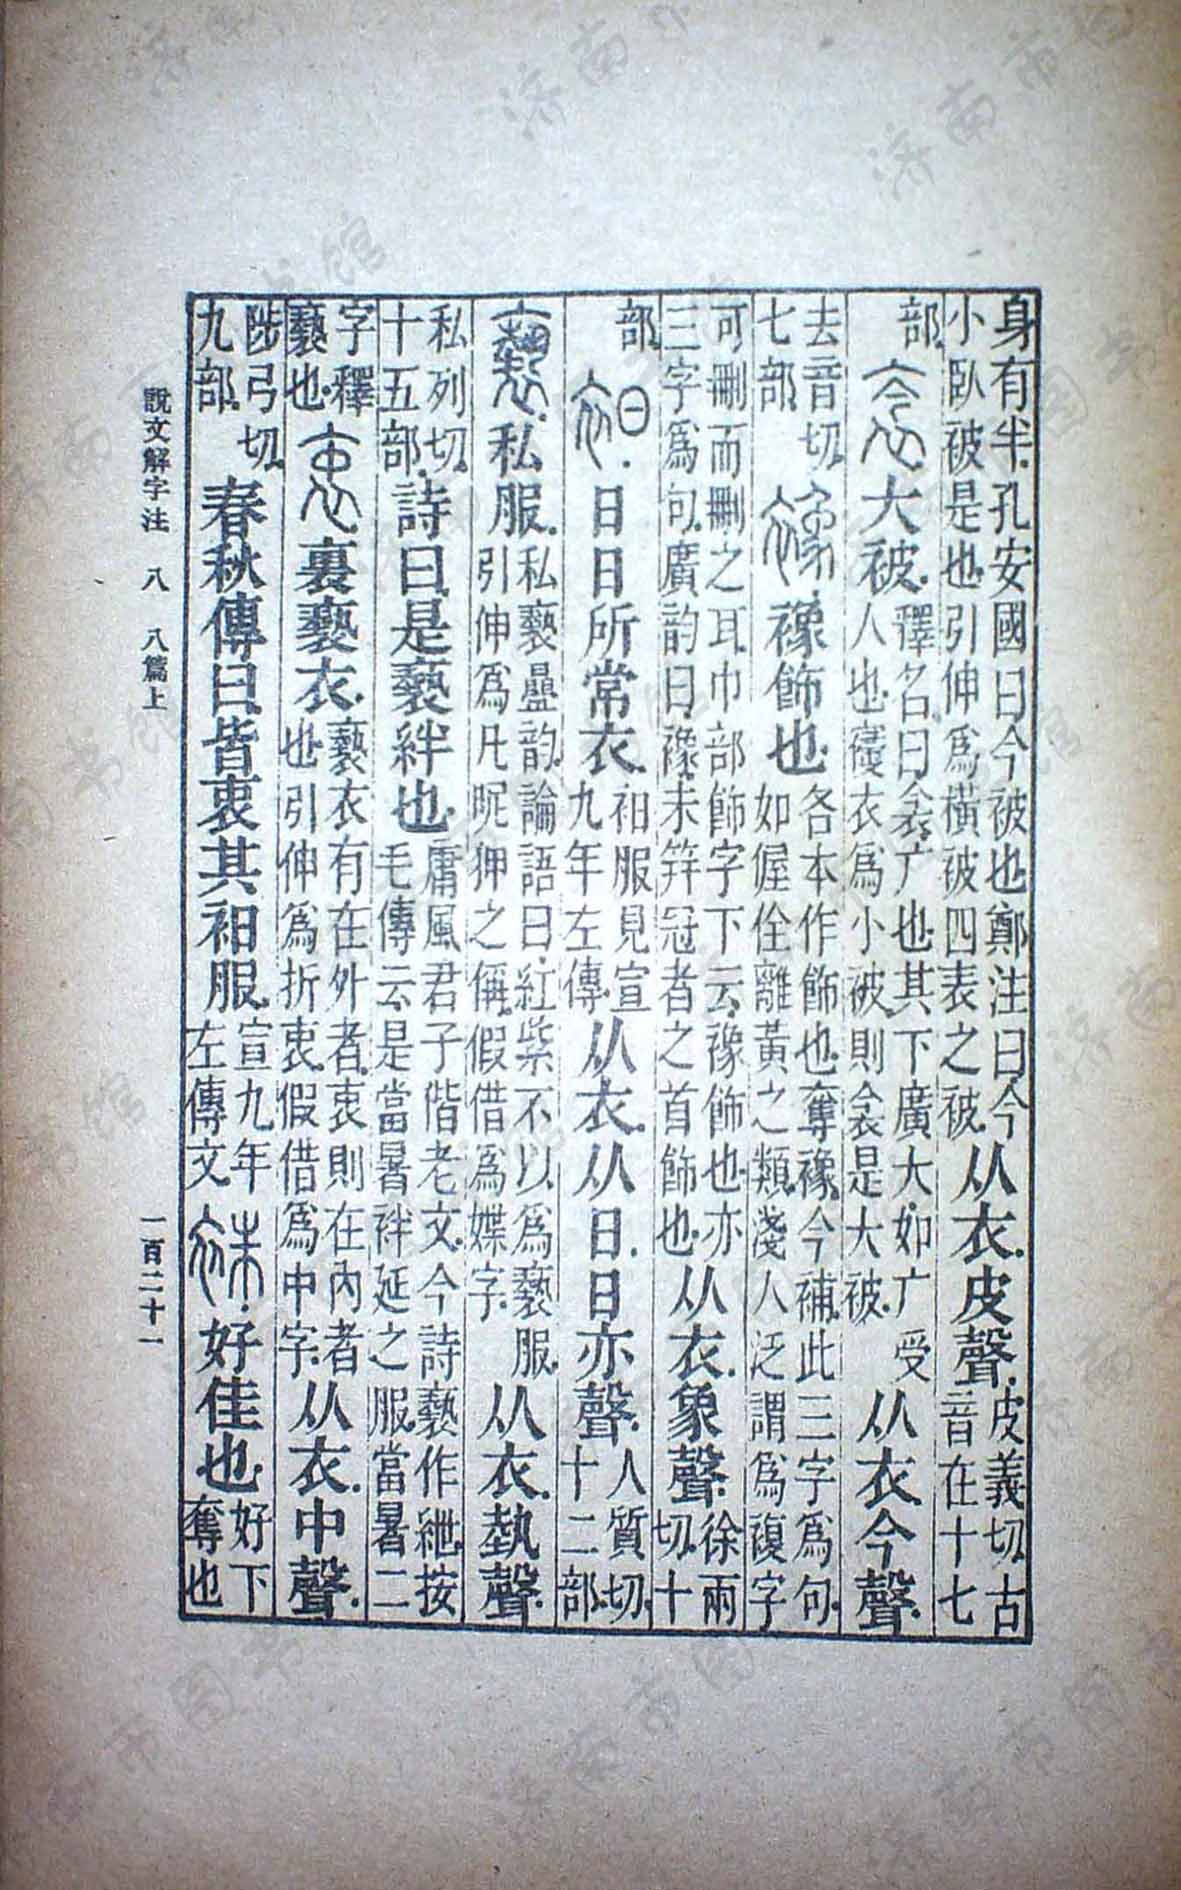 身有半。孔安國曰今被也鄭注曰今小臥被是也。引伸爲橫被四表之被。从衣。皮聲。皮義切。古音在十七
部。衾。大被。釋名曰衾广也。其下廣大。如广受人也。寢衣爲小被。則衾是大被。从衣。今聲。
去音切。七部。襐。襐飾也。各本作飾也。奪襐。今補。此三字爲句。如偓佺離黃之類。淺人泛謂爲複字
可刪而刪之耳。巾部飾字下云。襐飾也。亦三字爲句。廣韵曰。襐。未筓冠者之首飾也。从衣。象聲。徐兩切。十
部。衵。日日所常衣。衵服見宣九年左傳。从衣。从日。日亦聲。人質切。十二部。
褻。私服。私褻疊韵。論語曰。紅紫不以爲褻服。引伸爲凡昵狎之稱。假借爲媟字。从衣。埶聲。
私列切。十五部。詩曰。是褻絆也。庸風君子偕老文。今詩褻作紲。按毛傳云。是當暑袢延之服。當暑二
字釋褻也。衷。裏褻衣。褻衣有在外者。衷則在內者也。引伸爲折衷。假借爲中字。从衣。中聲。
陟弓切。九部。春秋傳曰。皆衷其衵服。宣九年左傳文。袾。好佳也。好下奪也
說文解字注 八 八篇上 一百二十一
济南市图书馆